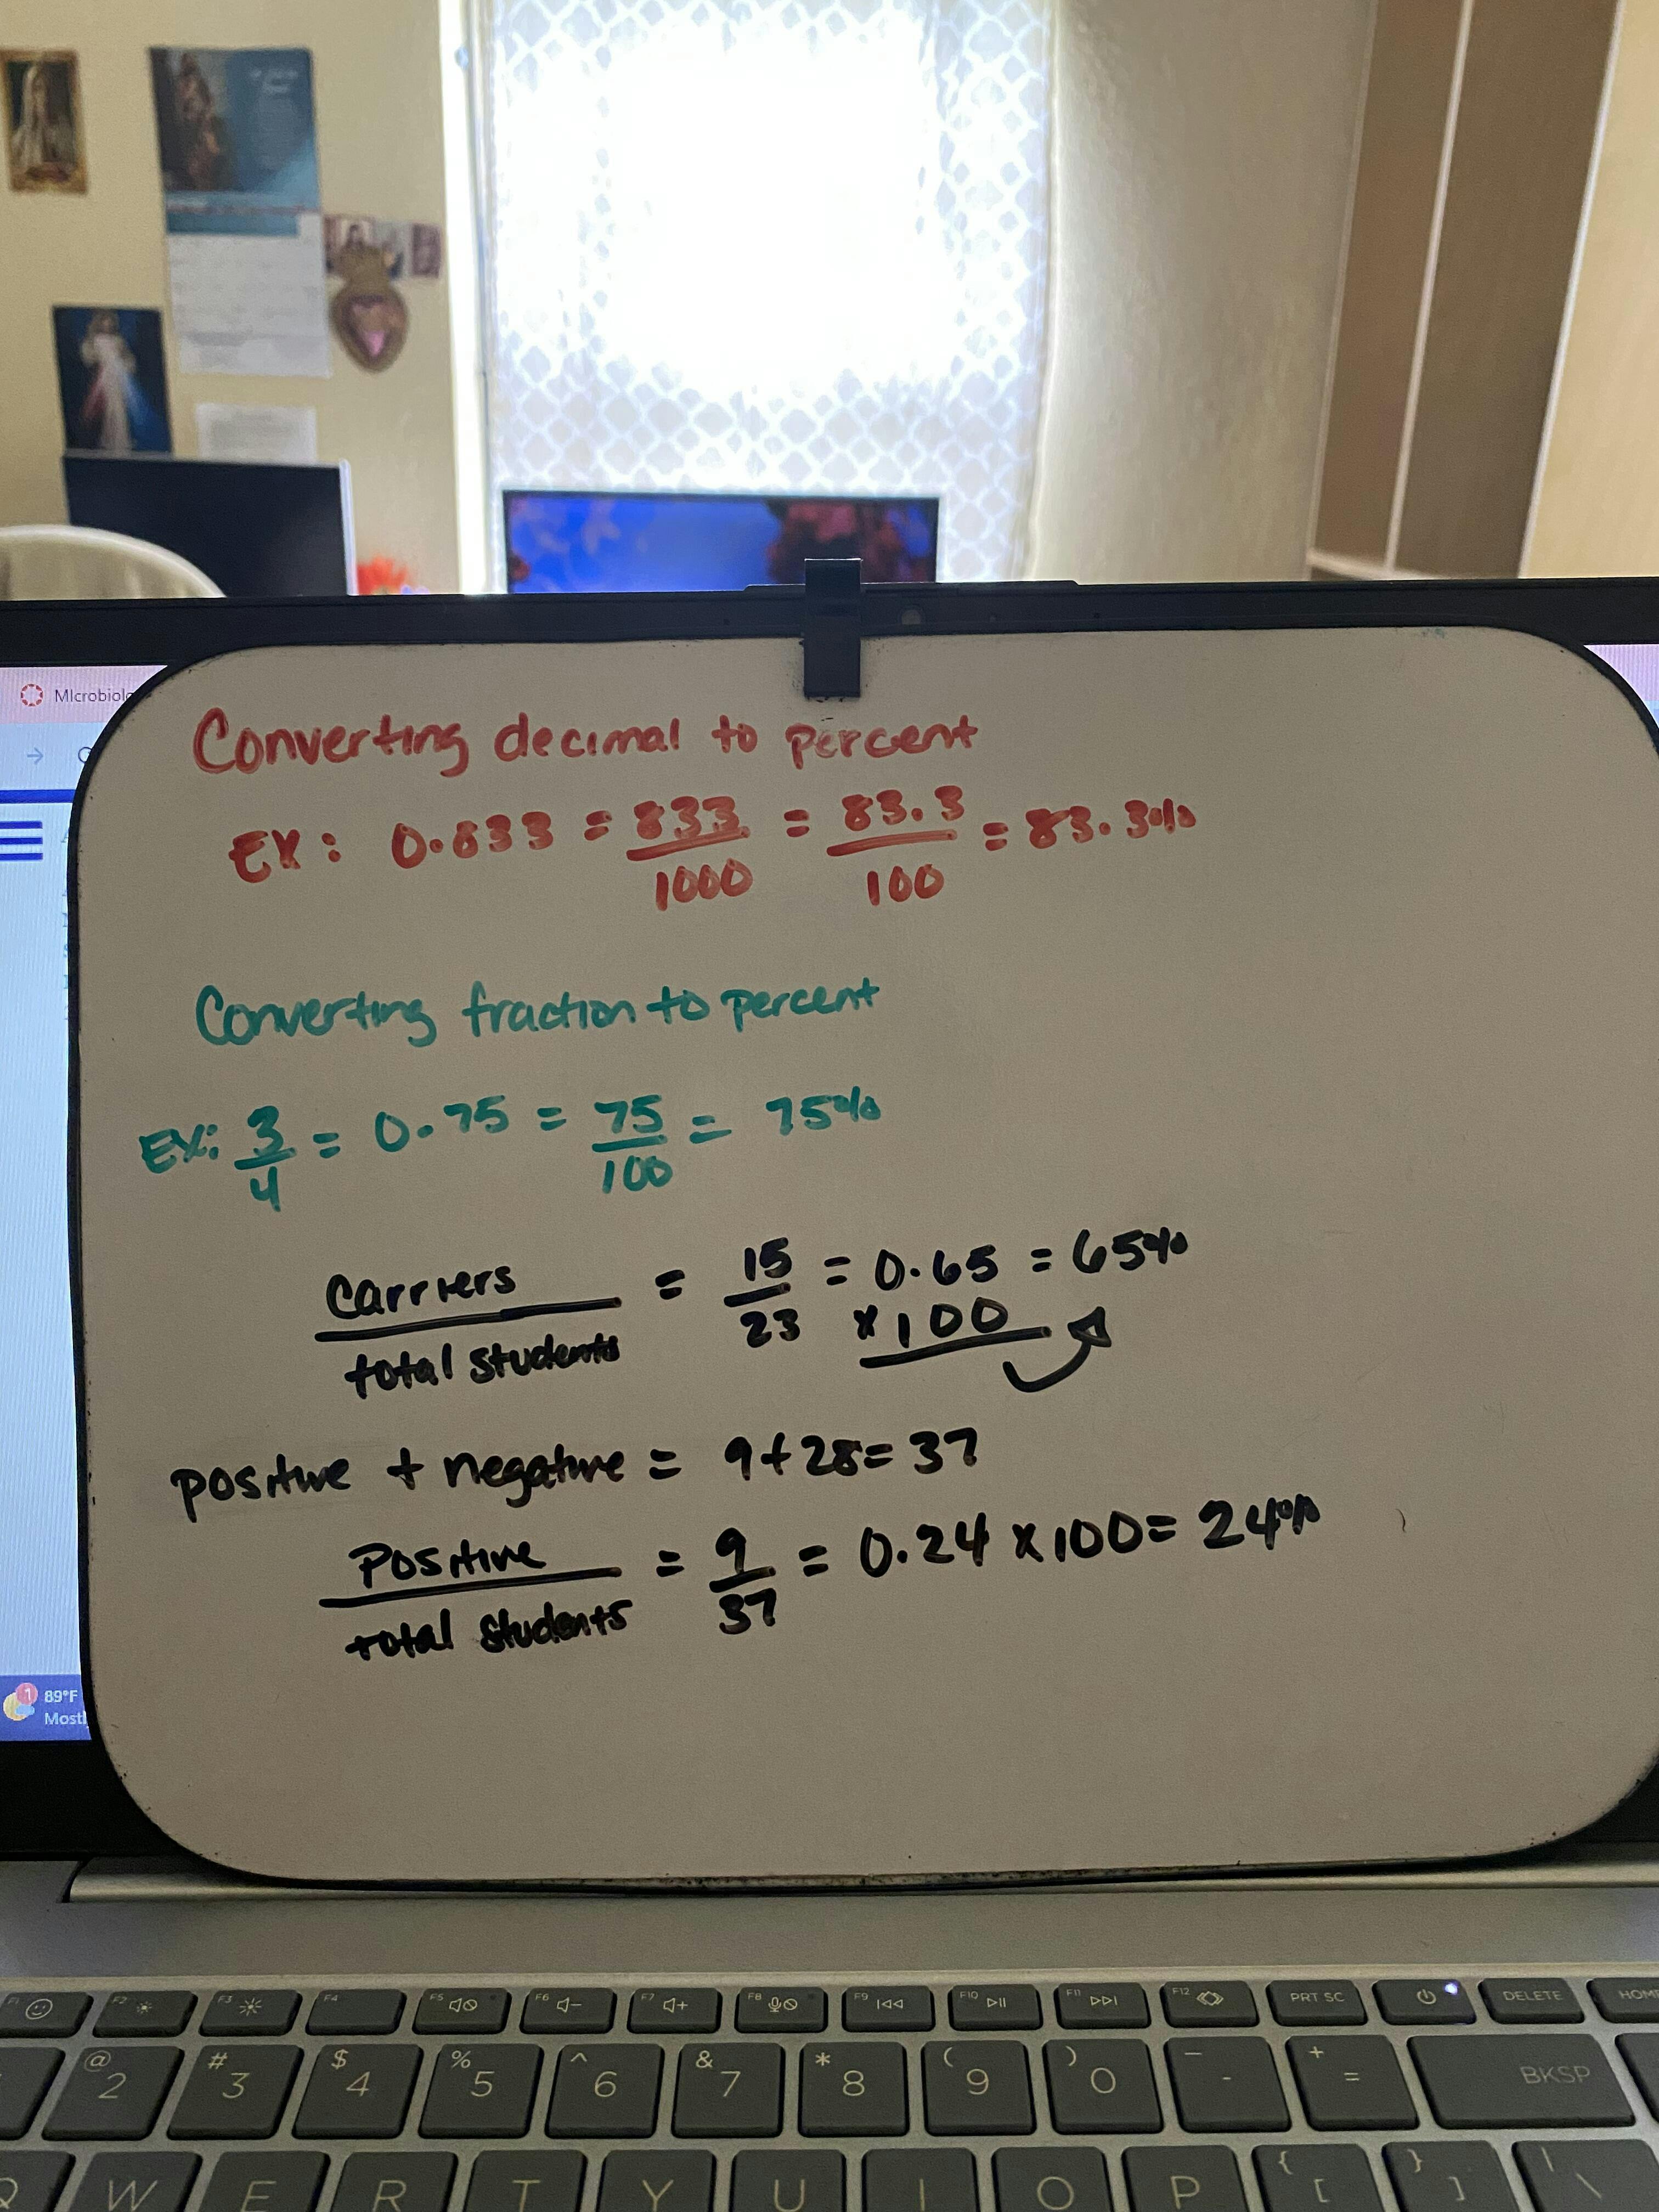 MIcrobiol
Converting decimal to percent
EX: 0.833 = 833/1000 = 83.3/100 = 83.3%
Converting fraction to percent
EX: 3/4 = 0.75 = 75/100 = 75%
Carriers/total students = 15/23 = 0.65 = 65%
x100
positive + negative = 9+28= 37
Positive/total students = 9/37 = 0.24 x100= 24%
1
89°F
Mostl
F1 F2 F3 F4 F5 F6 F7 F8 F9 F10 F11 F12 PRT SC DELETE HOME
@ # $ % ^ & * ( ) - +
2 3 4 5 6 7 8 9 0 - = BKSP
{ } |
Q W E R T Y U I O P [ ] \